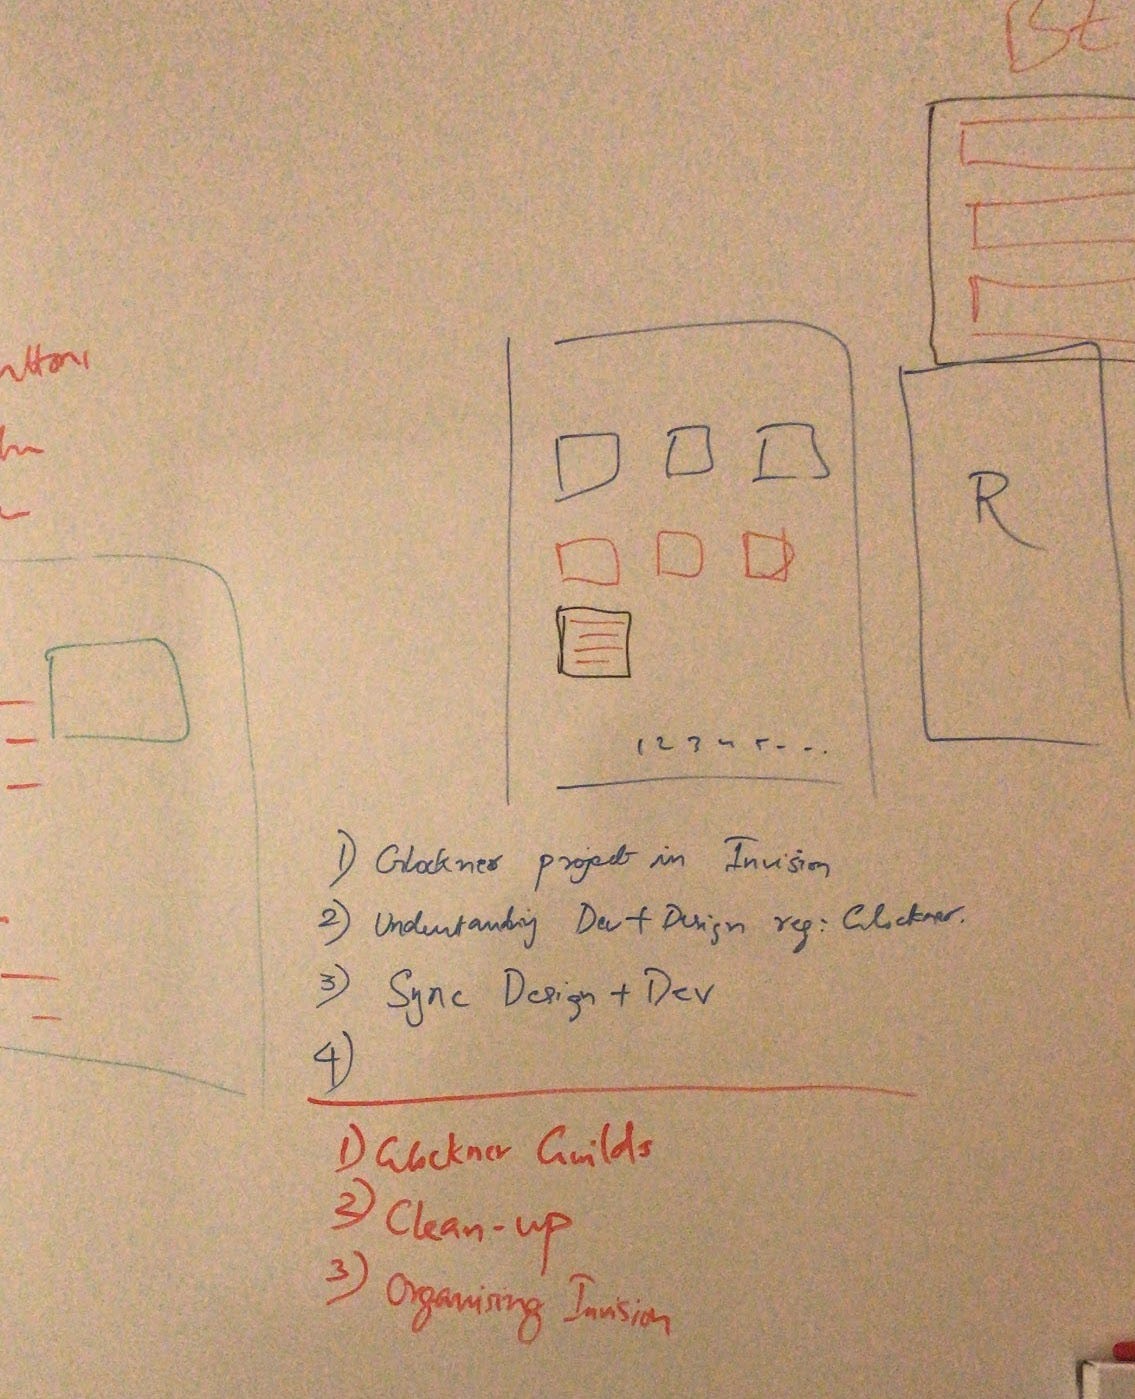 R
1 2 3 4 5 - - -
1) Glockner project in Invision
2) Understanding Dev + Design reg: Glockner.
3) Sync Design + Dev
4)
1) Glockner Guilds
2) Clean-up
3) Organising Invision